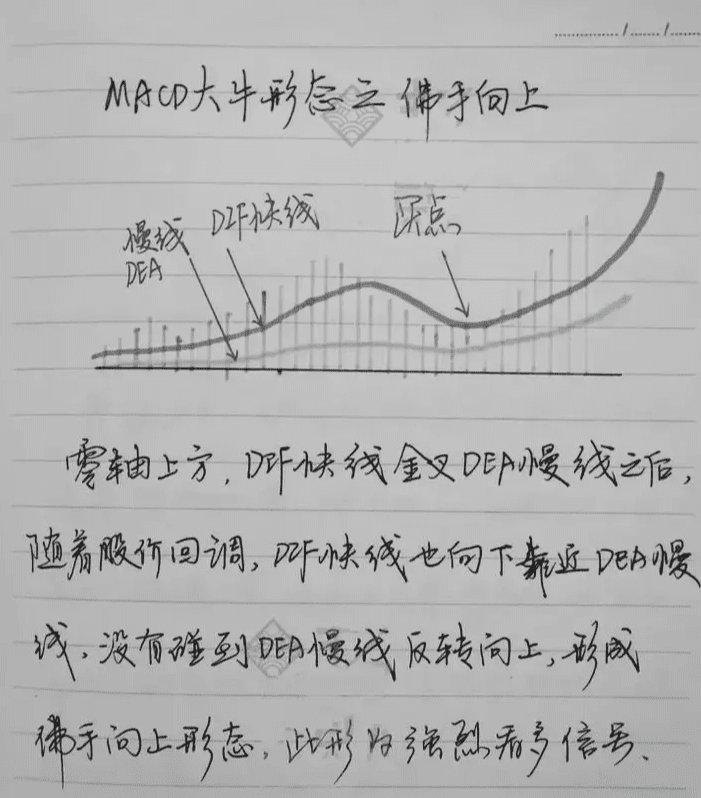 MACD大牛形态之佛手向上
慢线
DEA
DIF快线
买点
零轴上方,DIF快线金叉DEA慢线之后,
随着股价回调,DIF快线也向下靠近DEA慢
线,没有碰到DEA慢线反转向上,形成
佛手向上形态,此形为强烈看多信号、